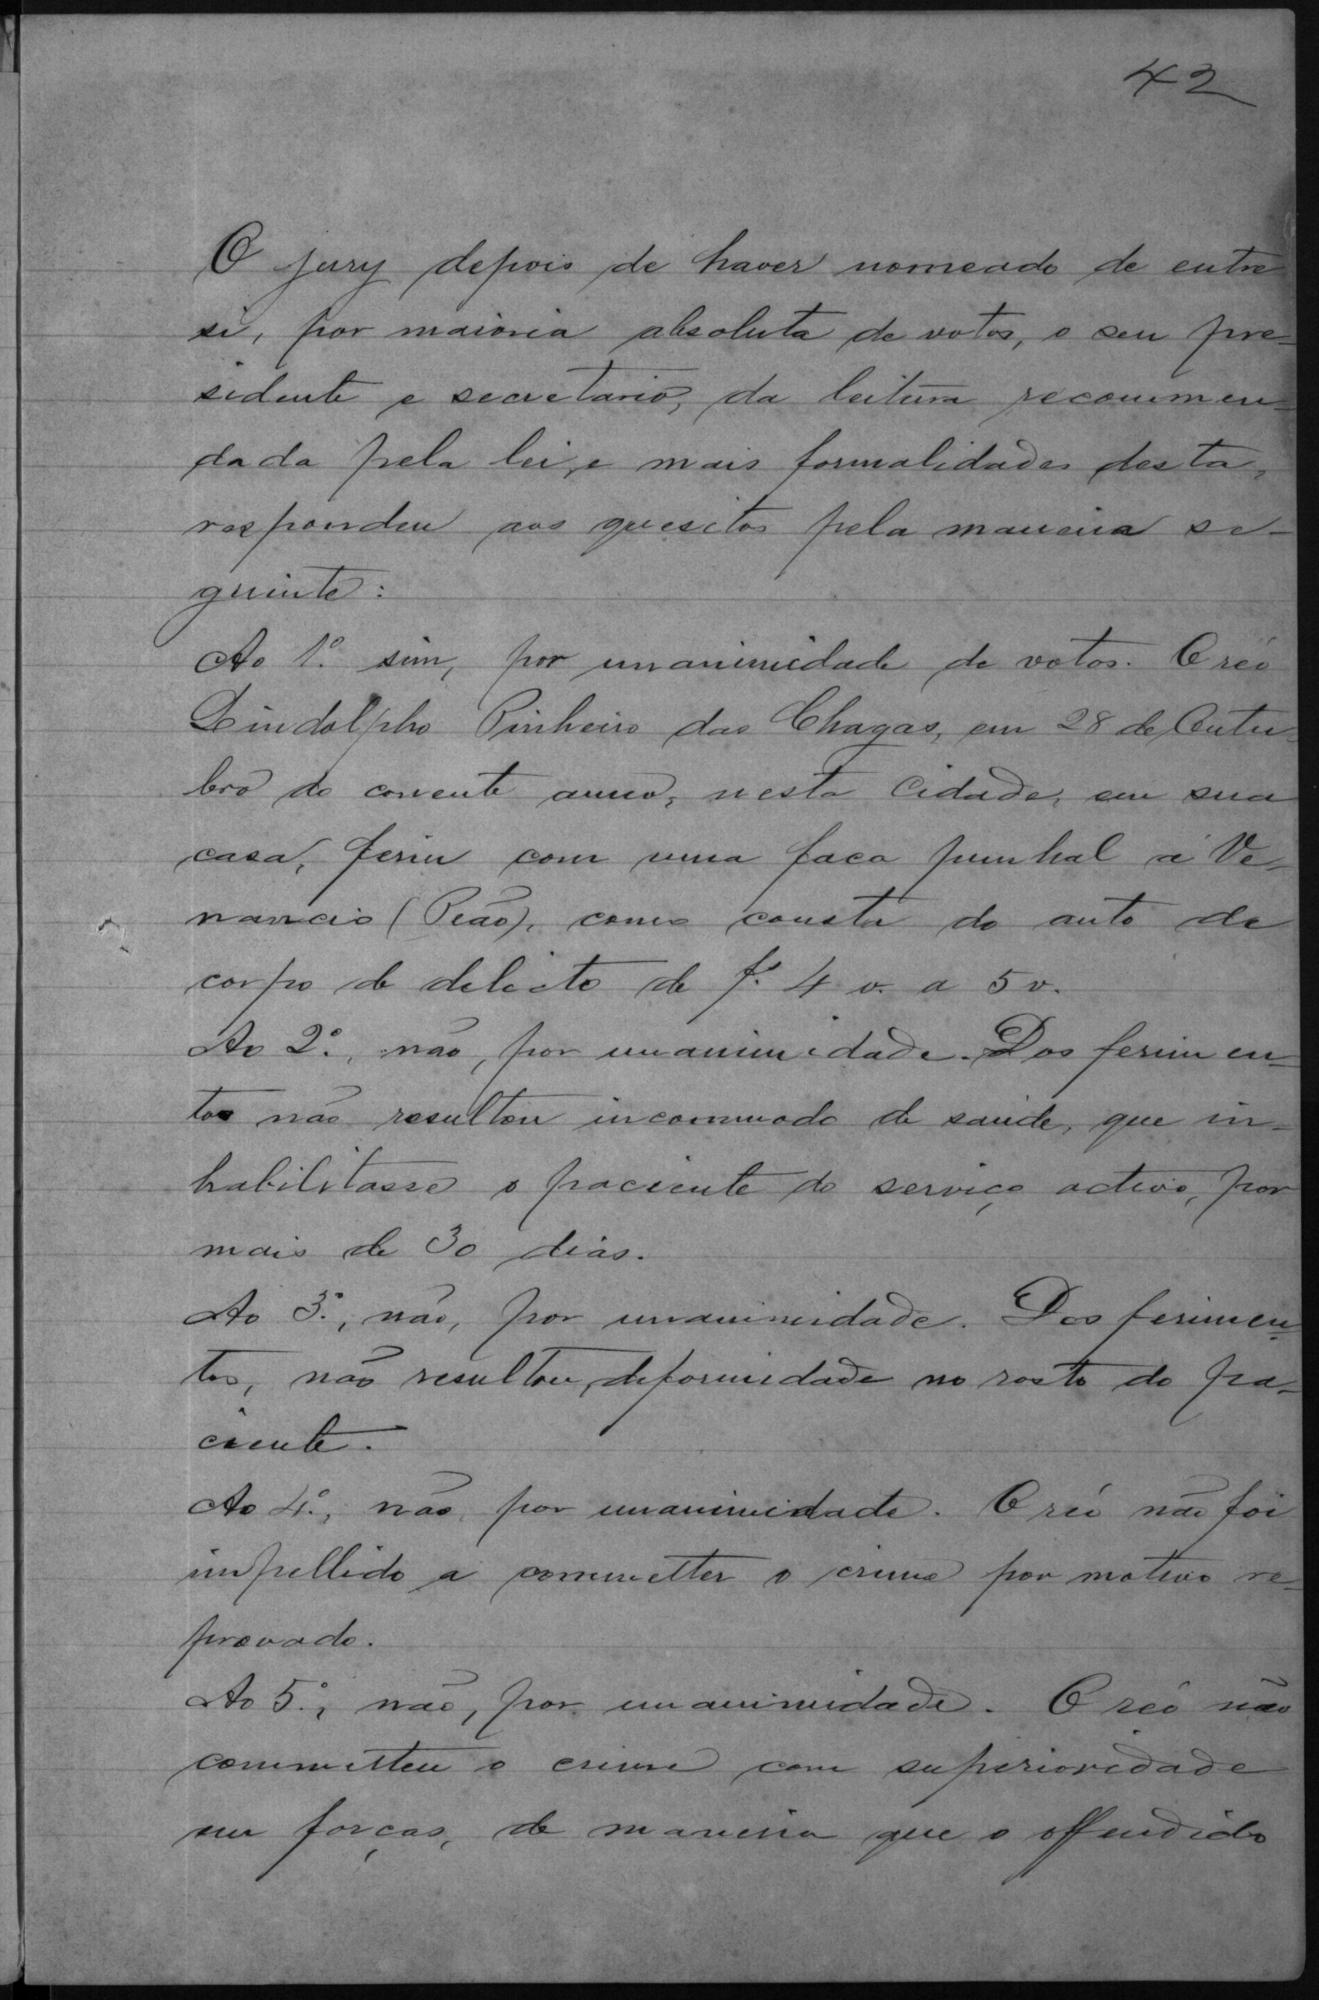 42
O jury depois de haver nomeado de entre
si, por maioria absoluta de votos, o seu pre-
sidente e secretario, da leitura recommen-
dada pela lei, e mais formalidades desta,
respondeu aos quesitos pela maneira se-
guinte:
Ao 1º. sim, por unanimidade de votos. O réo
Lindolpho Pinheiro das Chagas, em 28 de Outu-
bro do corrente anno, nesta Cidade, em sua
casa, feriu com uma faca punhal a Ve-
nancio (Peão), como consta do auto de
corpo de delicto de f. 4 v. a 5 v.
Ao 2º., não, por unanimidade. Dos ferimen-
tos não resultou incommodo de saúde, que in-
habilitasse o paciente do serviço activo, por
mais de 30 dias.
Ao 3º., não, por unanimidade. Dos ferimen-
tos, não resultou, deformidade no rosto do pa-
ciente.
Ao 4º., não, por unanimidade. O réo não foi
impellido a commetter o crime por motivo re-
provado.
Ao 5º., não, por unanimidade. O réo não
commetteu o crime com superioridade
em forças, de maneira que o offendido